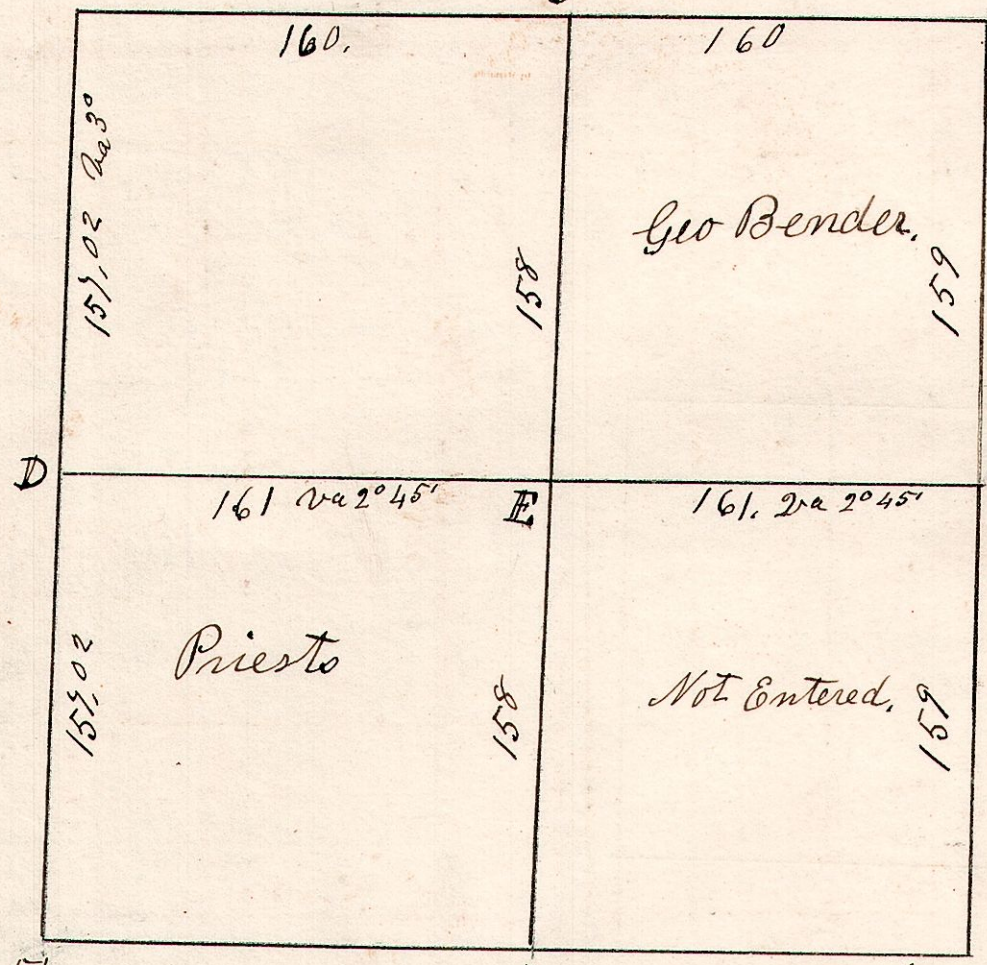 160.
160
157,02 Va 3°
158
Geo Bender.
159
D
161 va 2° 45'
E
161. Va 2° 45'
157,02
Priests
158
Not Entered.
159